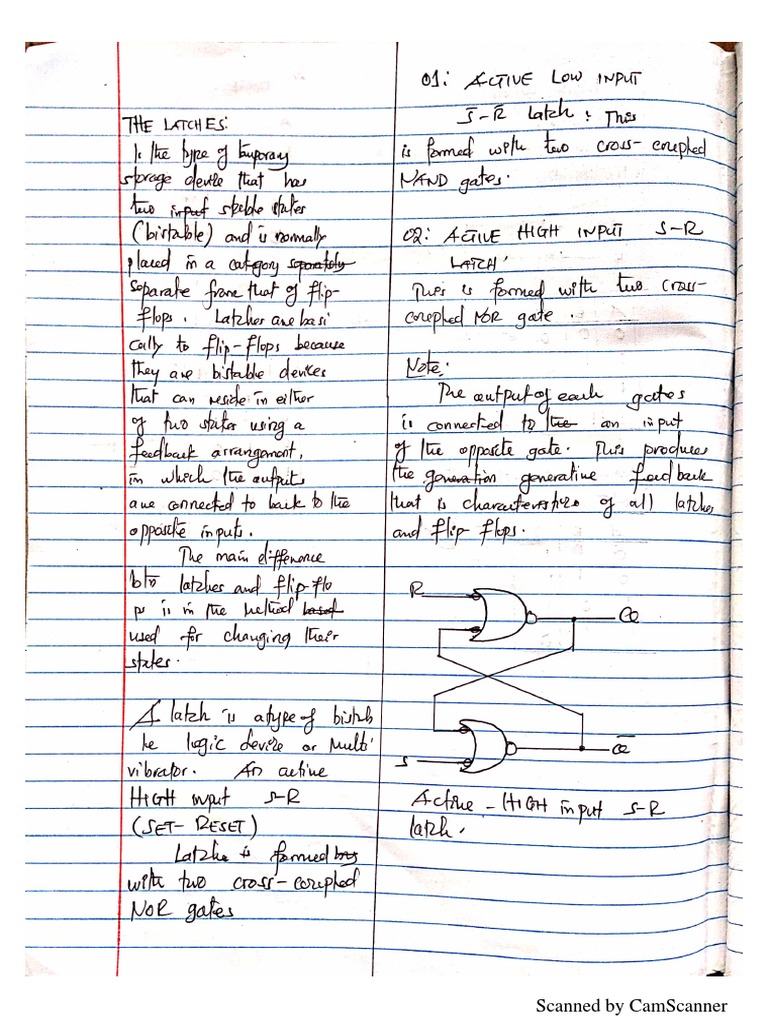 THE LATCHES:
Is the type of temporary
storage device that has
two input stable states
(bistable) and is normally
placed in a category separately
separate from that of flip-
flops. Latches are basi
cally to flip-flops because
they are bistable devices
that can reside in either
of two states using a
feedback arrangement,
in which the outputs
are connected to back to the
opposite inputs.
The main difference
btn latches and flip-flo
ps is in the method based
used for changing their
states.
A latch is a type of bistab
le logic device or multi
vibrator. An active
HIGH input S-R
(SET-RESET)
Latche is formed by
with two cross-coupled
NOR gates
01: ACTIVE LOW INPUT
S̅-R̅ latch: This
is formed with two cross-coupled
NAND gates.
02: ACTIVE HIGH INPUT S-R
LATCH:
This is formed with two cross-
coupled NOR gate.
Note:
The output of each gates
is connected to the an input
of the opposite gate. This produces
the generation generative feedback
that is characteristics of all latches
and flip flops.
R
Q
Q̅
S
Active-HIGH input S-R
latch.
Scanned by CamScanner